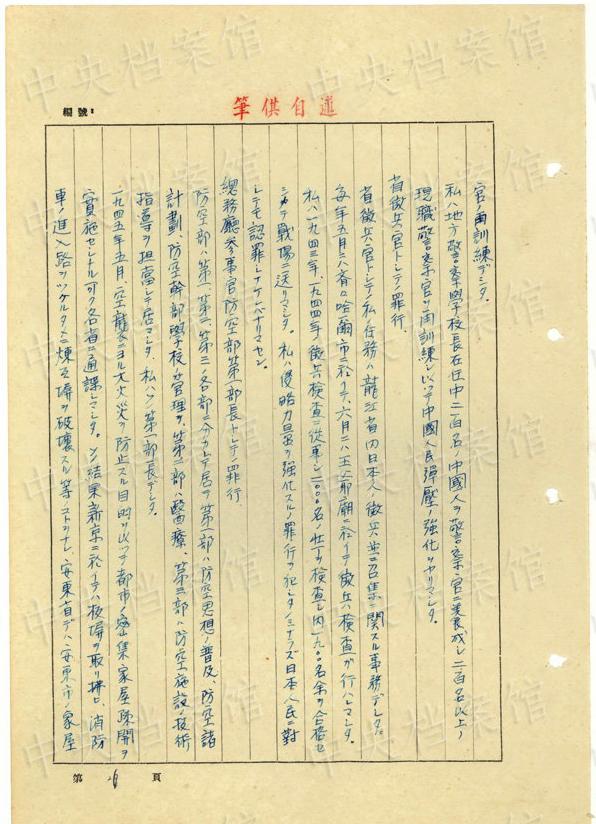 編號:
筆供自述
官ノ再訓練デシタ。
私ハ地方警察學校長在任中二百名ノ中國人ヲ警察官ニ養成シ二百名以上ノ
現職警察官ヲ再訓練シ以テ中國人民彈壓ノ強化ヲヤリマシタ。
省徵兵官トシテノ罪行.
省徵兵官トシテノ私ノ任務ハ龍江省內日本人ノ徵兵並ニ召集ニ關スル事務デシタ。
每年五月ニハ齊々哈爾市ニ於イテ、六月ニハ王爺廟ニ於イテ徵兵檢査ガ行ハレマシタ。
私ハ一九四三年、一九四四年徵兵檢査ニ從事シ二〇〇〇名ノ壯丁ヲ檢査シ內一九〇〇名余ヲ合格セ
シメテ戰場ニ送リマシタ。私ハ侵略力量ヲ強化スルノ罪行ヲ犯シタノミナラズ日本人民ニ對
シテモ認罪シナケレバナリマセン。
總務廳參事官防空部第一部長トシテノ罪行.
防空部ハ第一、第二、第三ノ各部ニ分カレテ居リ第一部ハ防空思想ノ普及、防空諸
計劃、防空幹部學校ノ管理ヲ、第二部ハ醫療、第三部ハ防空施設ノ技術
指導ヲ担當シテ居マシタ 私ハソノ第一部長デシタ。
一九四五年五月空襲ニヨル大火災ヲ防止スル目的ヲ以ツテ都市ノ密集家屋疎開ヲ
實施セシムル可ク各省ニ通諜シマシタ。ソノ結果新京ニ於イテハ板塀ヲ取リ拂ヒ、消防
車ノ進入路ヲツケルタメニ煉瓦塀ヲ破壞スル等ノコトヲナシ、安東省デハ安東市ノ家屋
第 頁
中央档案馆